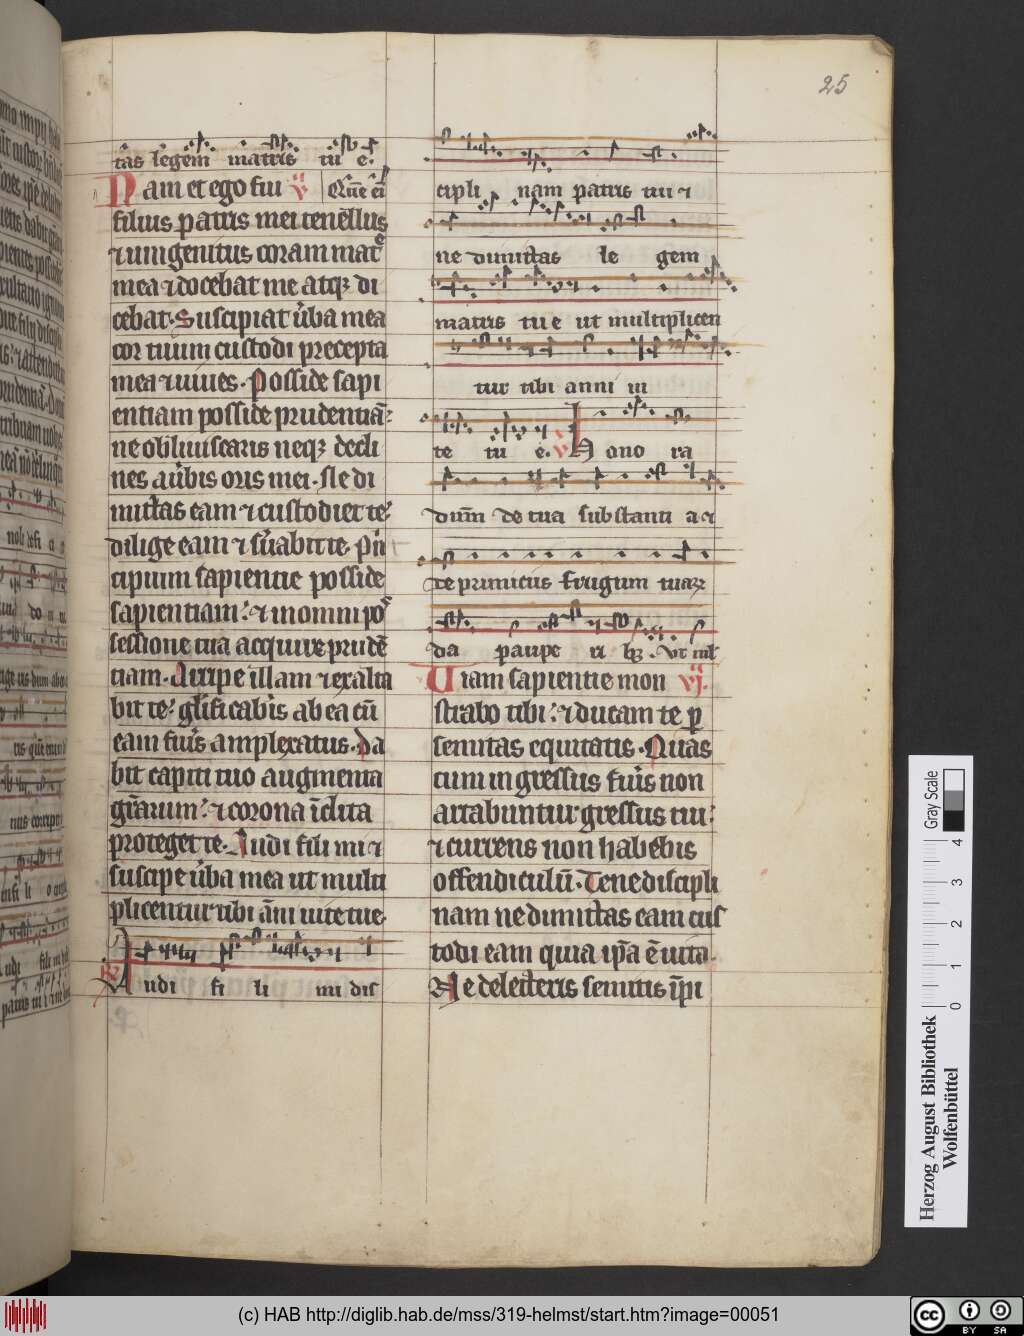 25
tas legem matris tu e.
Nam et ego fui v Que cū
filius patris mei tenellus
⁊ unigenitus coram matͤ
mea ⁊ docebat me atqꝫ di
cebat. Suscipiat v̄ba mea
cor tuum custodi precepta
mea ⁊ uiues. Posside sapi
entiam posside prudentiā:
ne obliuiscaris neqꝫ decli
nes a v̄bis oris mei. Ne di
mittas eam ⁊ custodiet te:
dilige eam ⁊ s̄uabit te. Pⁱn
cipium sapientie posside
sapientiam: ⁊ in omni pos
sessione tua acquire prudē
tiam. Arripe illam ⁊ exalta
bit te: gl̄ificab̄is ab ea cū
eam fuīs amplexatus. Da
bit capiti tuo augmenta
gr̄arum: ⁊ corona īclita
proteget te. Audi fili mi ⁊
suscipe v̄ba mea ut multi
plicentur tibi āni uite tue.
℞ Audi fi li mi dis
cipli nam patris tui ⁊
ne dimittas le gem
matris tue ut multiplicen
tur tibi anni ui
te tu e. v Hono ra
dūm de tua substanti a ⁊
de primiciis frugum tuaꝝ
da paupe ri bꝫ. Ut mľ
Uiam sapientie mon vj.
strabo tibi: ⁊ ducam te ꝑ
semitas equitatis. Quas
cum ingressus fuīs non
artabuntur gressus tui:
⁊ currens non habebis
offendiculū. Tene discipli
nam ne dimittas eam cus
todi eam quia ip̄a ē uita.
Ne delecteris semitis īpi
Herzog August Bibliothek
Wolfenbüttel
0 1 2 3 4
Gray Scale
(c) HAB http://diglib.hab.de/mss/319-helmst/start.htm?image=00051
cc BY SA